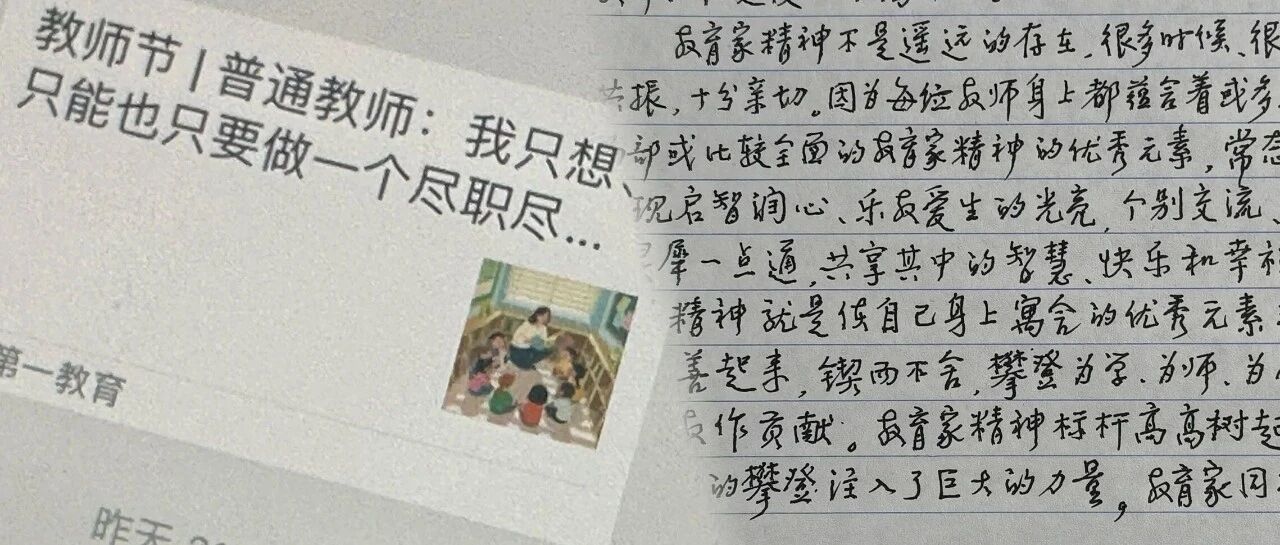 教师节 | 普通教师：我只想、
只能也只要做一个尽职尽...
第一教育
昨天
教育家精神不是遥远的存在，很多时候、很
共振，十分亲切。因为每位教师身上都蕴含着或多
部或比较全面的教育家精神的优秀元素，常态
现启智润心、乐教爱生的光亮，个别交流、
犀一点通，共享其中的智慧、快乐和幸福
精神就是使自己身上寓含的优秀元素
善起来，锲而不舍，攀登为学、为师、为
作贡献。教育家精神标杆高高树起
的攀登注入了巨大的力量，教育家同